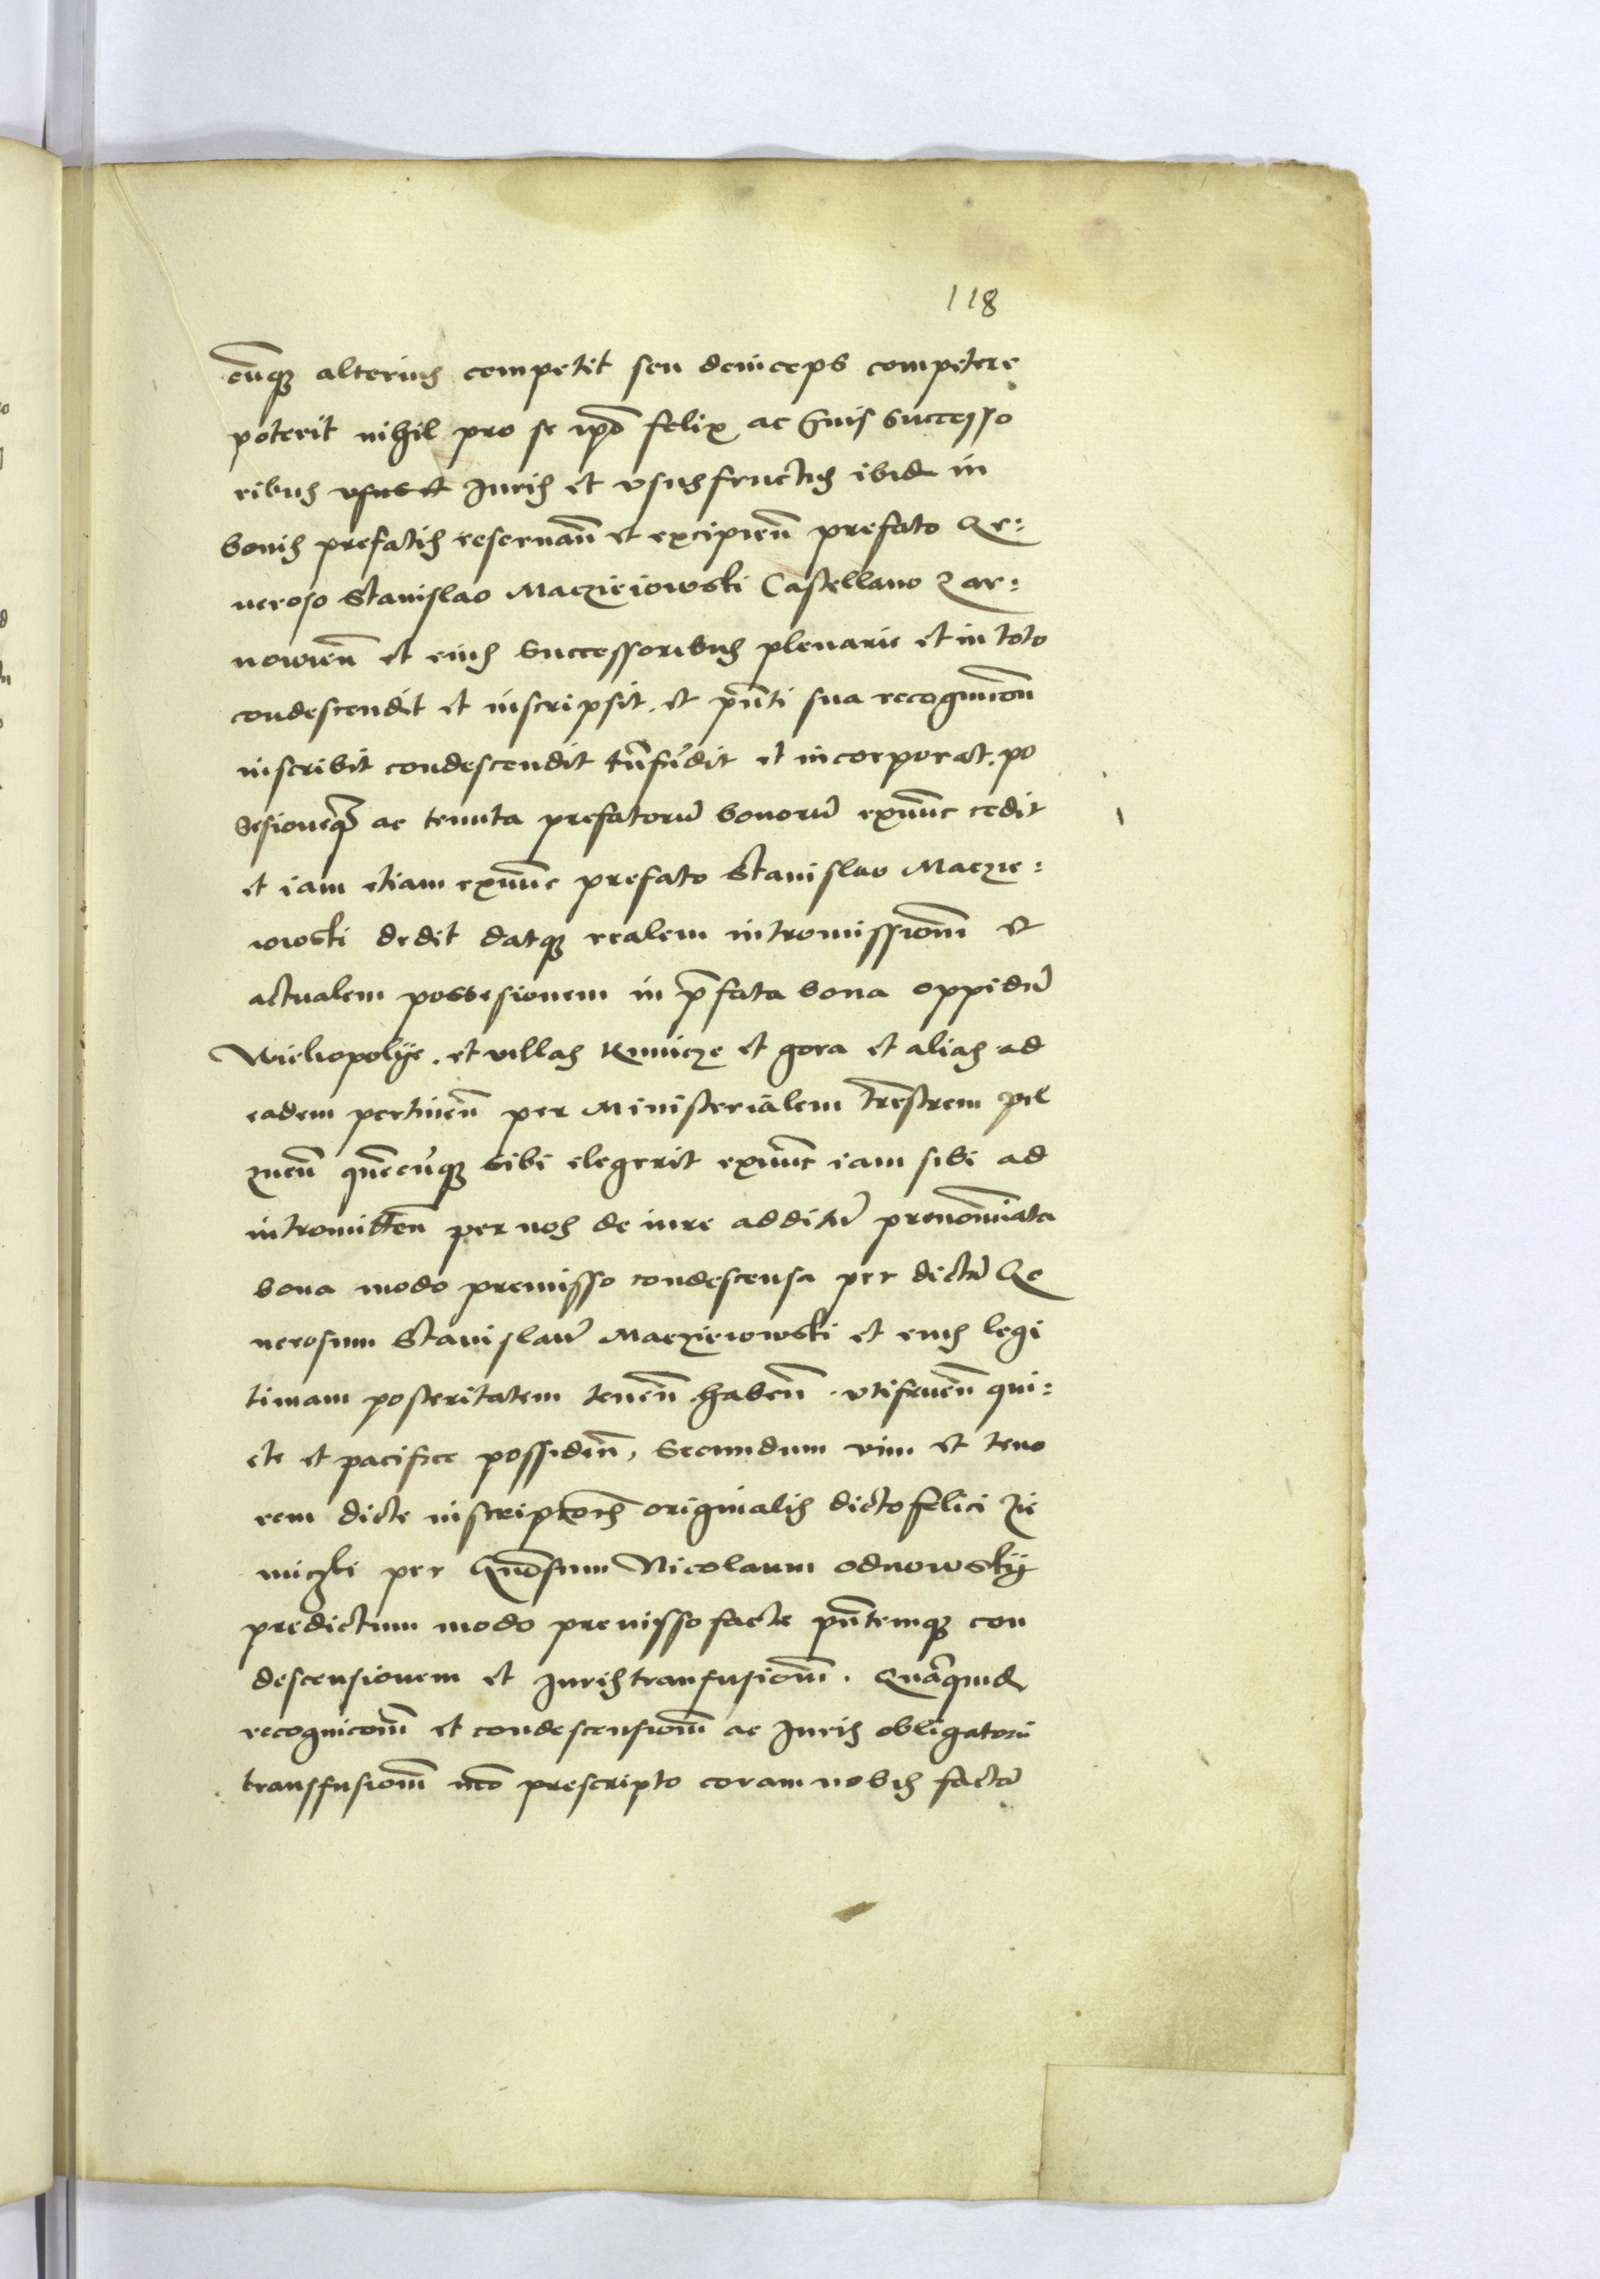 118
cuq̃ alterius competit seu deinceps competere
poterit nihil pro se ip̃o felix ac suis successo
ribus Juris et vsusfructus ibid in
bonis prefatis reseruan̄ et excipien̄ prefato Ge:
neroso Stanislao Macziẽiowski Castellano Zar:
nowien̄ et eius successoribus plenarie et in toto
condescendit et inscripsit, et pñti sua recognicõn
inscribit condescendit trñfũdit et incorporat, po
sesioneq̃ ac tenuta prefatorũ bonorũ exnũc cedit
et iam etiam exnũc prefato Stanislao Maczie:
iowski dedit datq̃ realem intromissionẽ et
actualem possesionem in p̃fata bona oppidũ
Wielopolije. et villas Kunicze et gora et alias ad
eadem pertinen̄ per Ministerialem trẽstrem pil
znen̄ quẽcũq̃ sibi elegerit exnũc iam sibi ad
intromitten̄ per nos de iure additũ prenoĩata
bona modo premisso condescensa per dictũ Ge
nerosum Stanislaũ Macziewowski et eius legi
timam posteritatem tenen̄ haben̄ vtifruen̄ qui:
ete et pacifice possiden̄, Secundum vim et teno
rem dicte inscripcõis originalis dicto felici Zie
miczki per Gñosum Nicolaum odnowskij
predictum modo premisso facte pñtemq̃ con
descensionem et Juris tranfusionẽ. Quãquid
recognicõem et condescensionẽ ac Juris obligatorij
transfusionẽ mõ prescripto coram nobis factã